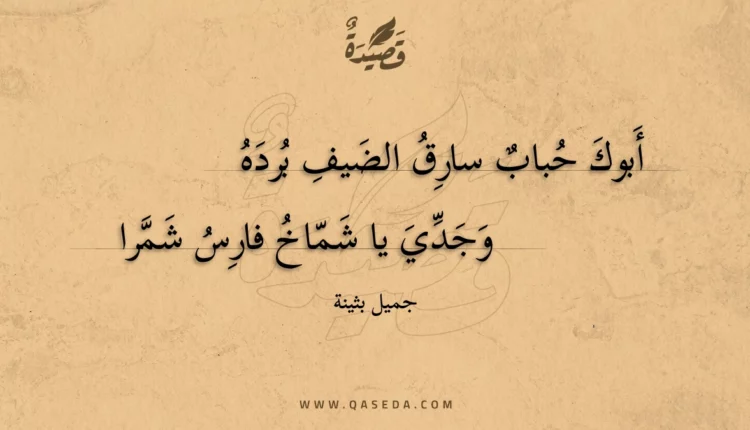 قَصِيْدَةٌ
أَبوكَ حُبابٌ سارِقُ الضَيفِ بُردَهُ
وَجَدِّيَ يا شَمّاخُ فارِسُ شَمَّرا
جميل بثينة
WWW.QASEDA.COM